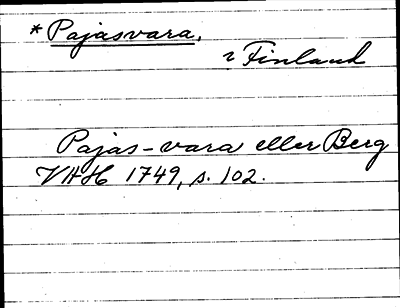 * Pajasvara.
i Finland
Pajas-vara eller Berg
VAH 1749, s. 102.